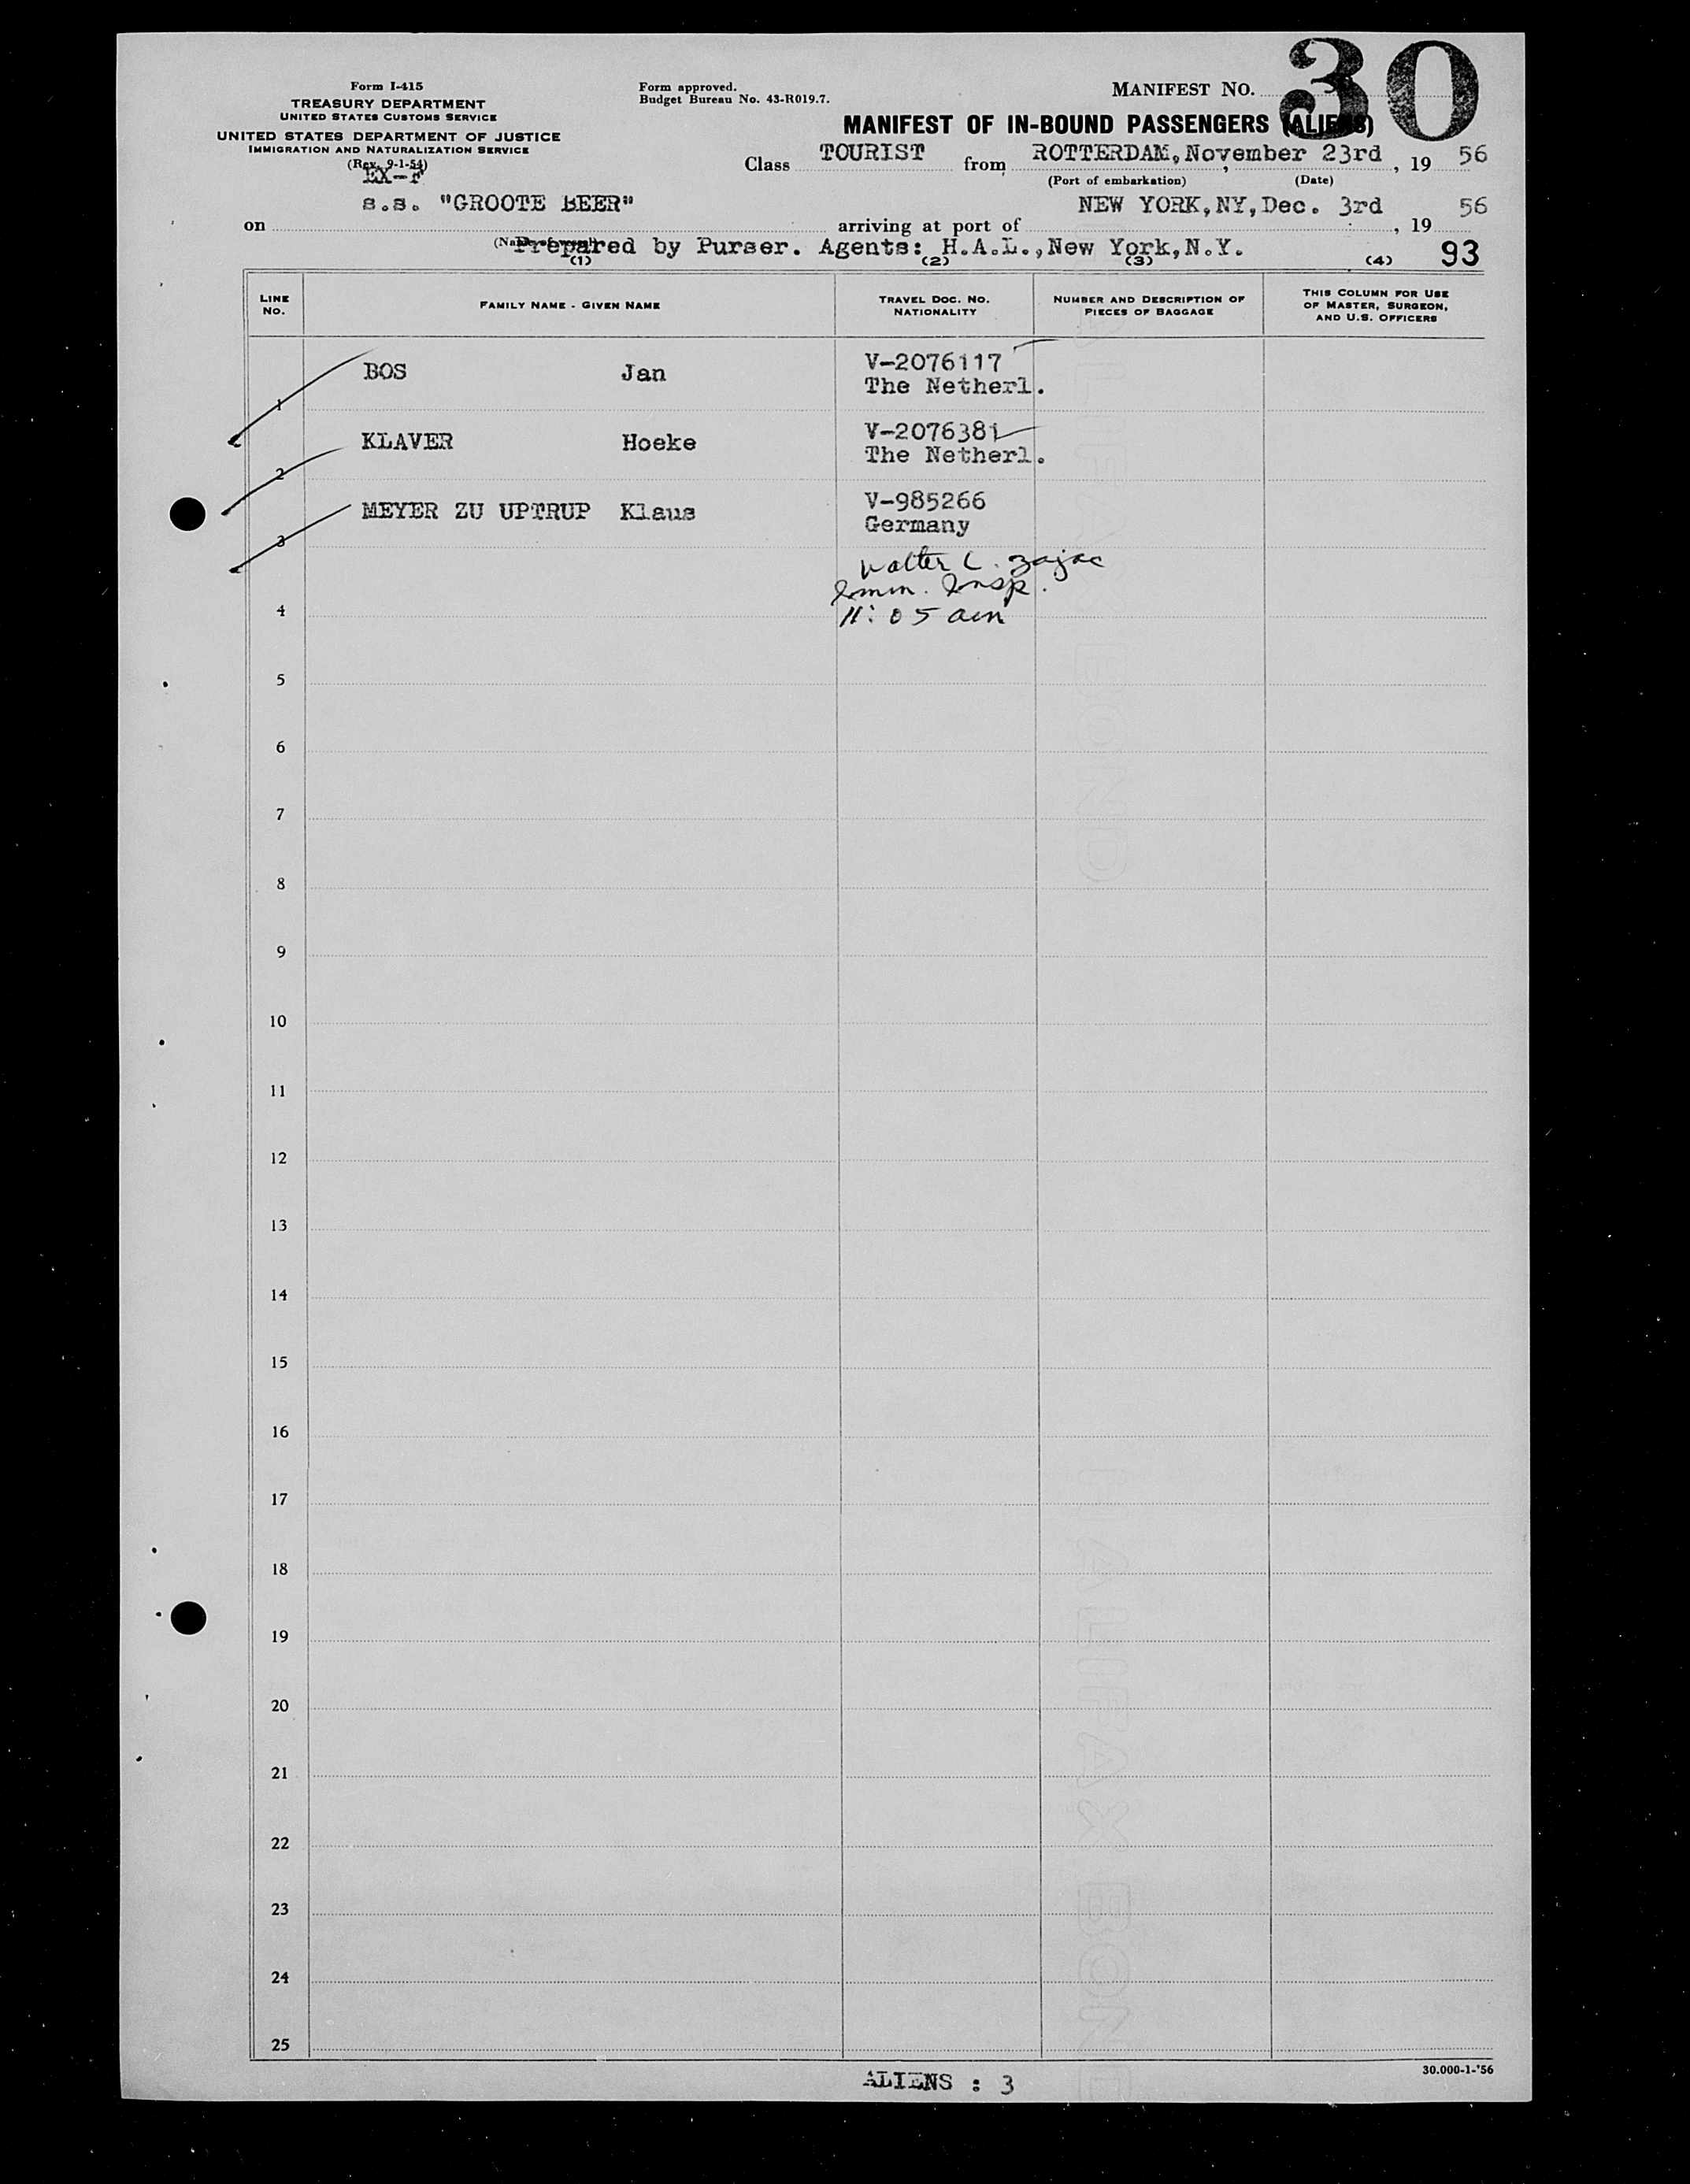 30
Form I-415
TREASURY DEPARTMENT
UNITED STATES CUSTOMS SERVICE
UNITED STATES DEPARTMENT OF JUSTICE
IMMIGRATION AND NATURALIZATION SERVICE
(Rev. 9-1-54)
EX-F
Form approved.
Budget Bureau No. 43-R019.7.
MANIFEST NO.
MANIFEST OF IN-BOUND PASSENGERS (ALIENS)
Class TOURIST from ROTTERDAM, November 23rd, 19 56
(Port of embarkation) (Date)
on s.s. "GROOTE BEER" arriving at port of NEW YORK, NY, Dec. 3rd, 19 56
Prepared by Purser. Agents: H.A.L., New York, N.Y. 93
(1) (2) (3) (4)
LINE NO. FAMILY NAME - GIVEN NAME TRAVEL DOC. NO. NATIONALITY NUMBER AND DESCRIPTION OF PIECES OF BAGGAGE THIS COLUMN FOR USE OF MASTER, SURGEON, AND U.S. OFFICERS
1 BOS Jan V-2076117
The Netherl.
2 KLAVER Hoeke V-2076381
The Netherl.
3 MEYER ZU UPTRUP Klaus V-985266
Germany
Walter C. Zajac
Immn. Insp.
4 11:05 am
5
6
7
8
9
10
11
12
13
14
15
16
17
18
19
20
21
22
23
24
25
ALIENS : 3
30.000-1-'56
HALIFAX BOND